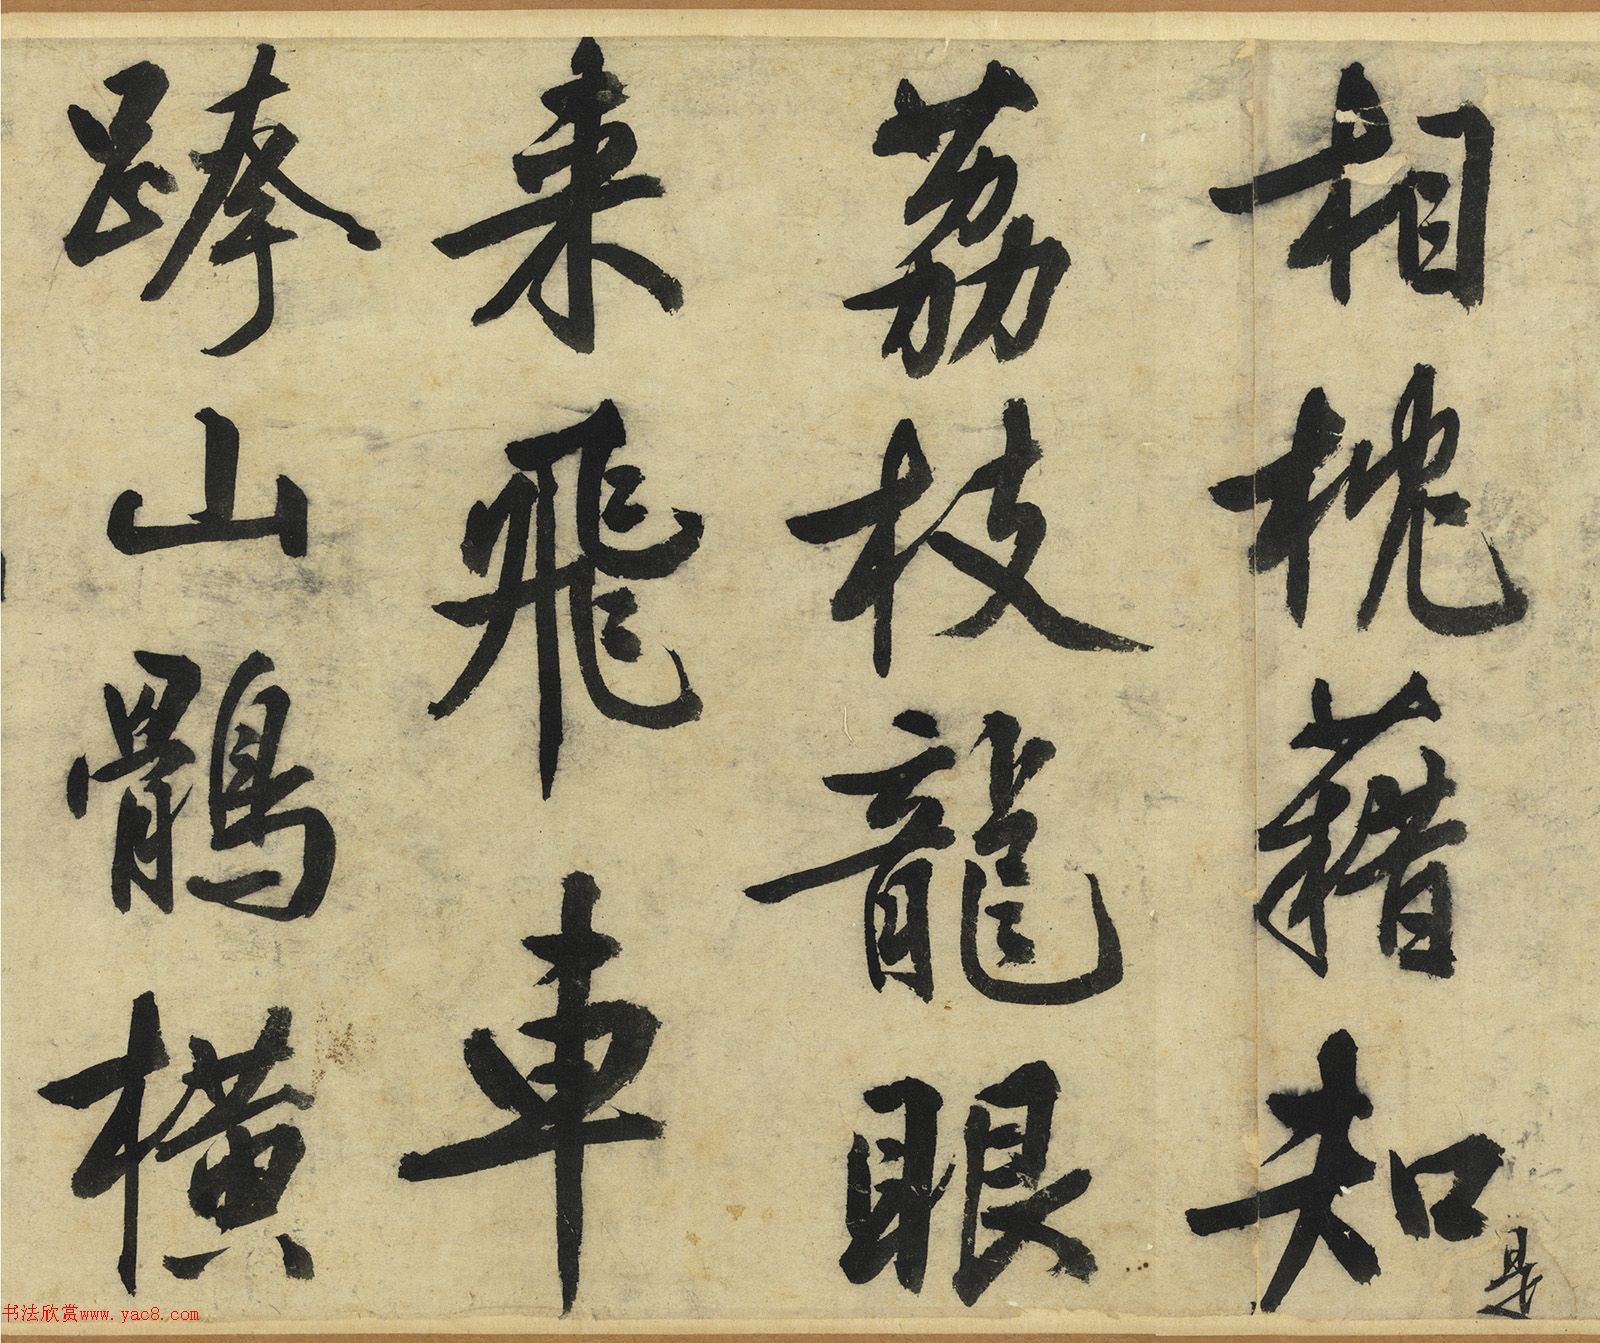 相枕藉知
是
荔枝龍眼
来飛車
跨山鶻橫
书法欣赏www.yac8.com